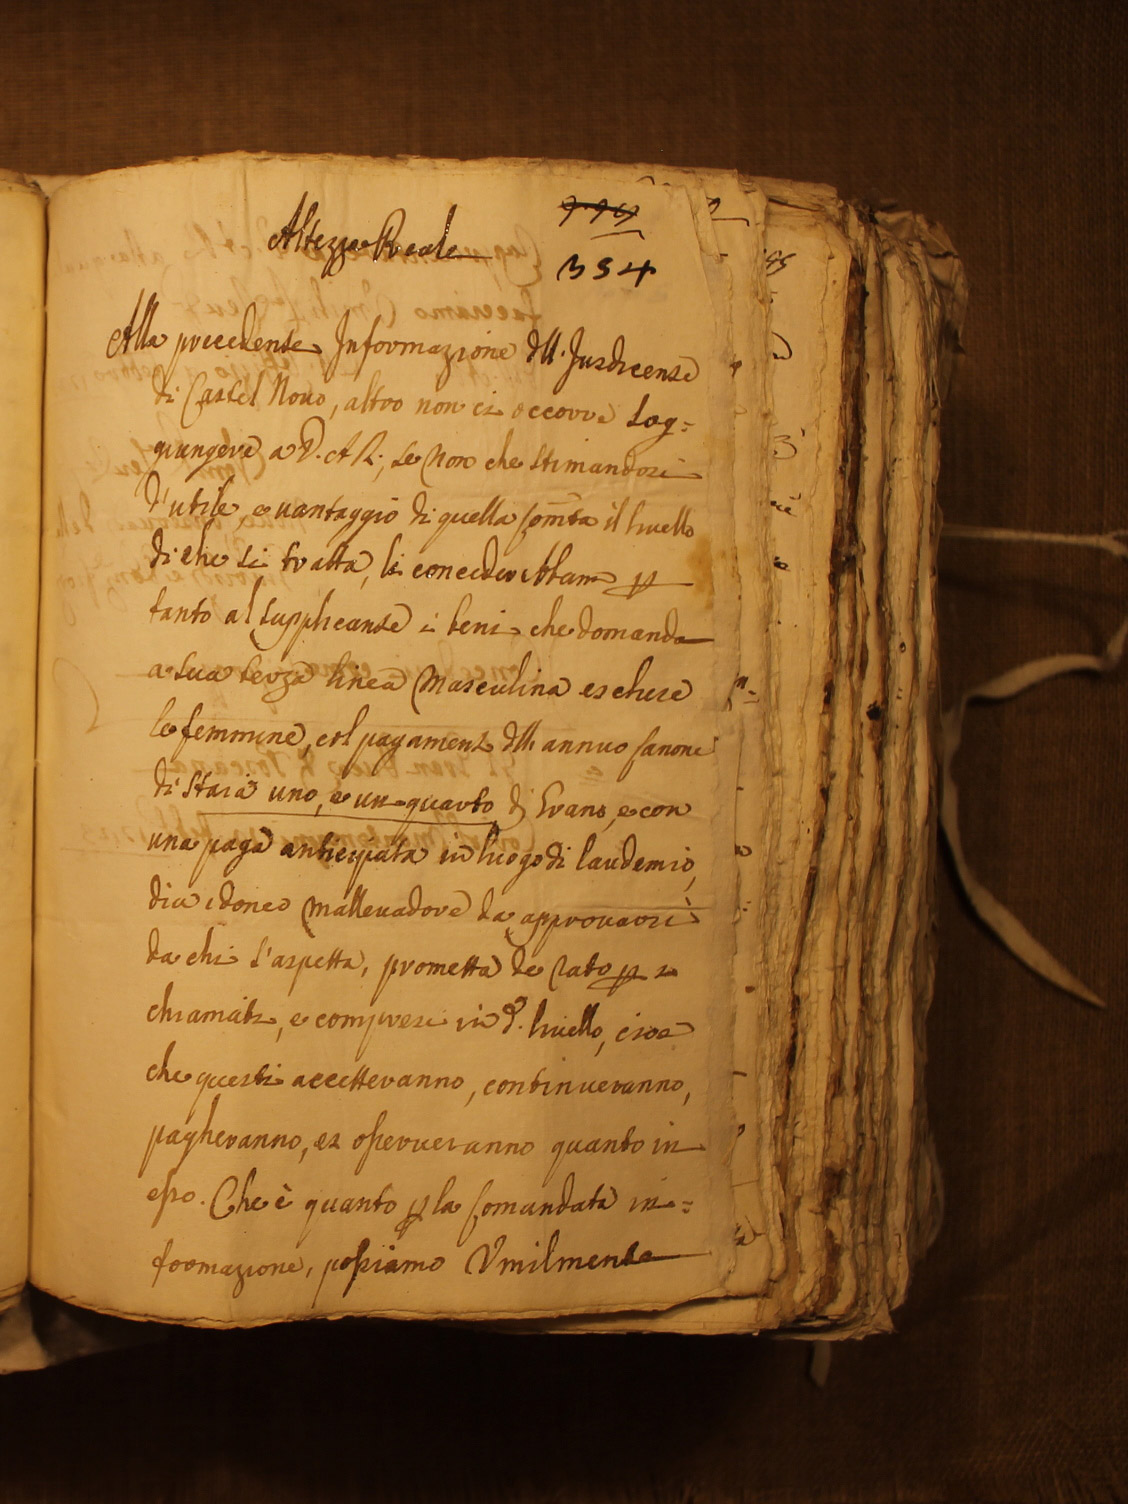 Altezze Reale
334
Alla precedente Informazione dll. Jusdicense
di Castel Nouo, altro non ci occorre sog=
giungere a V. A R., se non che stimandosi
d'utile, e uantaggio di quella Com.ta il liuello
di che si tratta, li concederebbam p
tanto al supplicante i beni che domanda
a sua terza linea masculina escluse
le femmine, col pagament dll annuo canone
di staia uno, e un quarto di Grano, e con
una paga anticipata in luogo di laudemio,
dia idoneo malleuadore da approuarsi
da chi s'aspetta, prometta de rato p i
chiamati, e compresi in d.o liuello, cioe
che questi accetteranno, continueranno,
pagheranno, et osserueranno quanto in
esso. Che è quanto p la comandata in=
formazione, possiamo Vmilmente